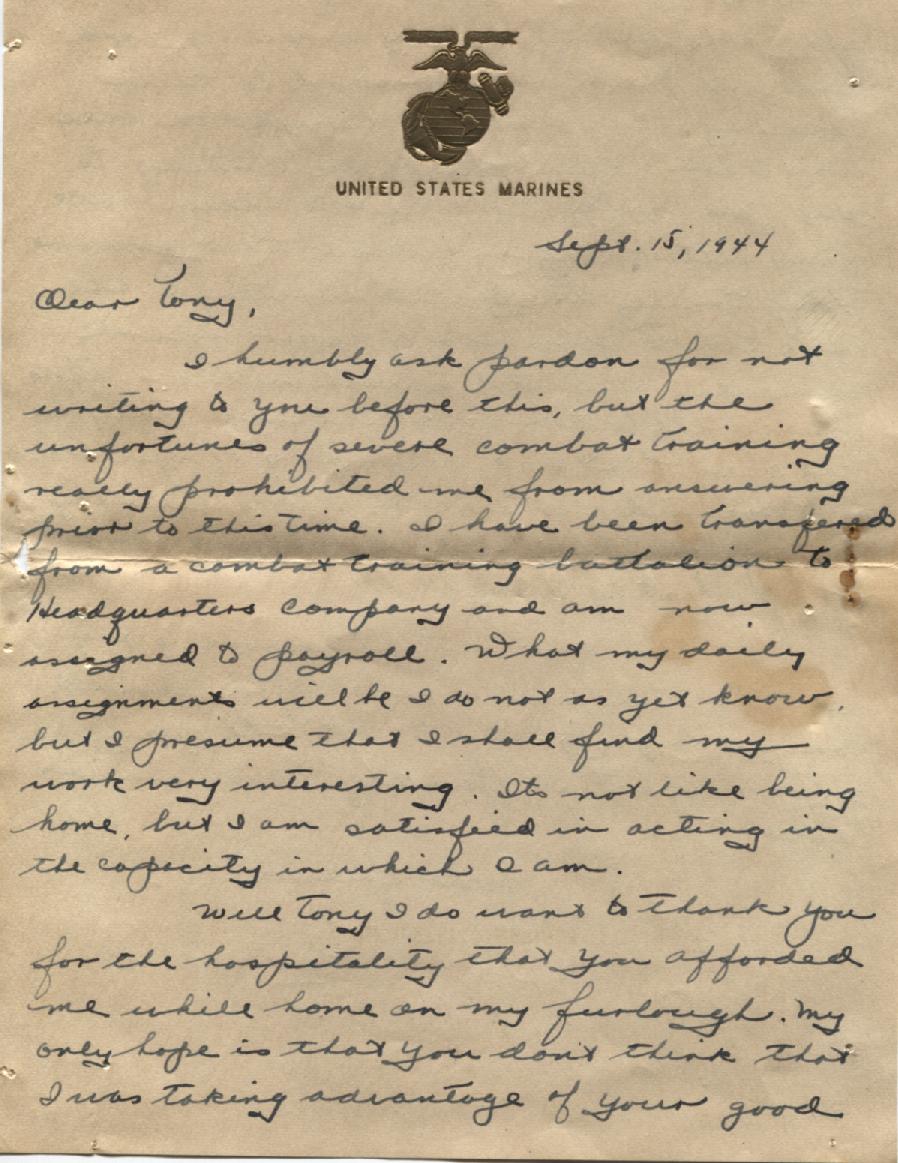 UNITED STATES MARINES
Sept. 15, 1944
Dear Tony,
I humbly ask pardon for not
writing to you before this, but the
unfortunes of severe combat training
really prohibited me from answering
prior to this time. I have been transfered
from a combat training battalion to
Headquarters Company and am now
assigned to payroll. What my daily
assignments will be I do not as yet know,
but I presume that I shall find my
work very interesting. Its not like being
home, but I am satisfied in acting in
the capacity in which I am.
Will Tony I do want to thank you
for the hospitality that you afforded
me while home on my furlough. My
only hope is that you don't think that
I was taking advantage of your good